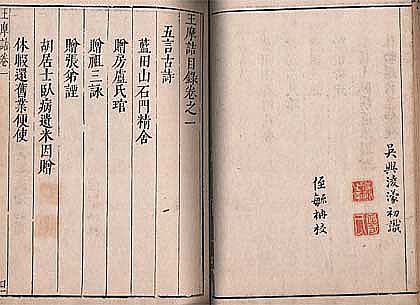 吳興淩濛初識
侄毓柟校
王摩詰目錄卷之一
五言古詩
藍田山石門精舍
贈房盧氏琯
贈祖三詠
贈張弟諲
胡居士臥病遺米因贈
休暇還舊業便使
王摩詰卷一